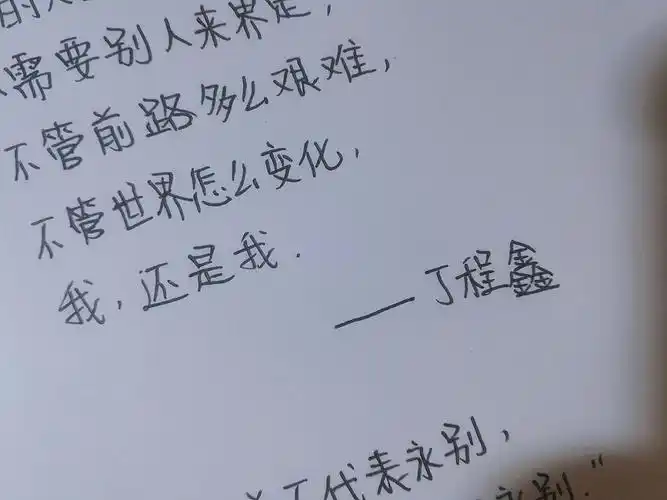 需要别人来界定，
不管前路多么艰难，
不管世界怎么变化，
我，还是我.
——丁程鑫
代表永别，
永别."